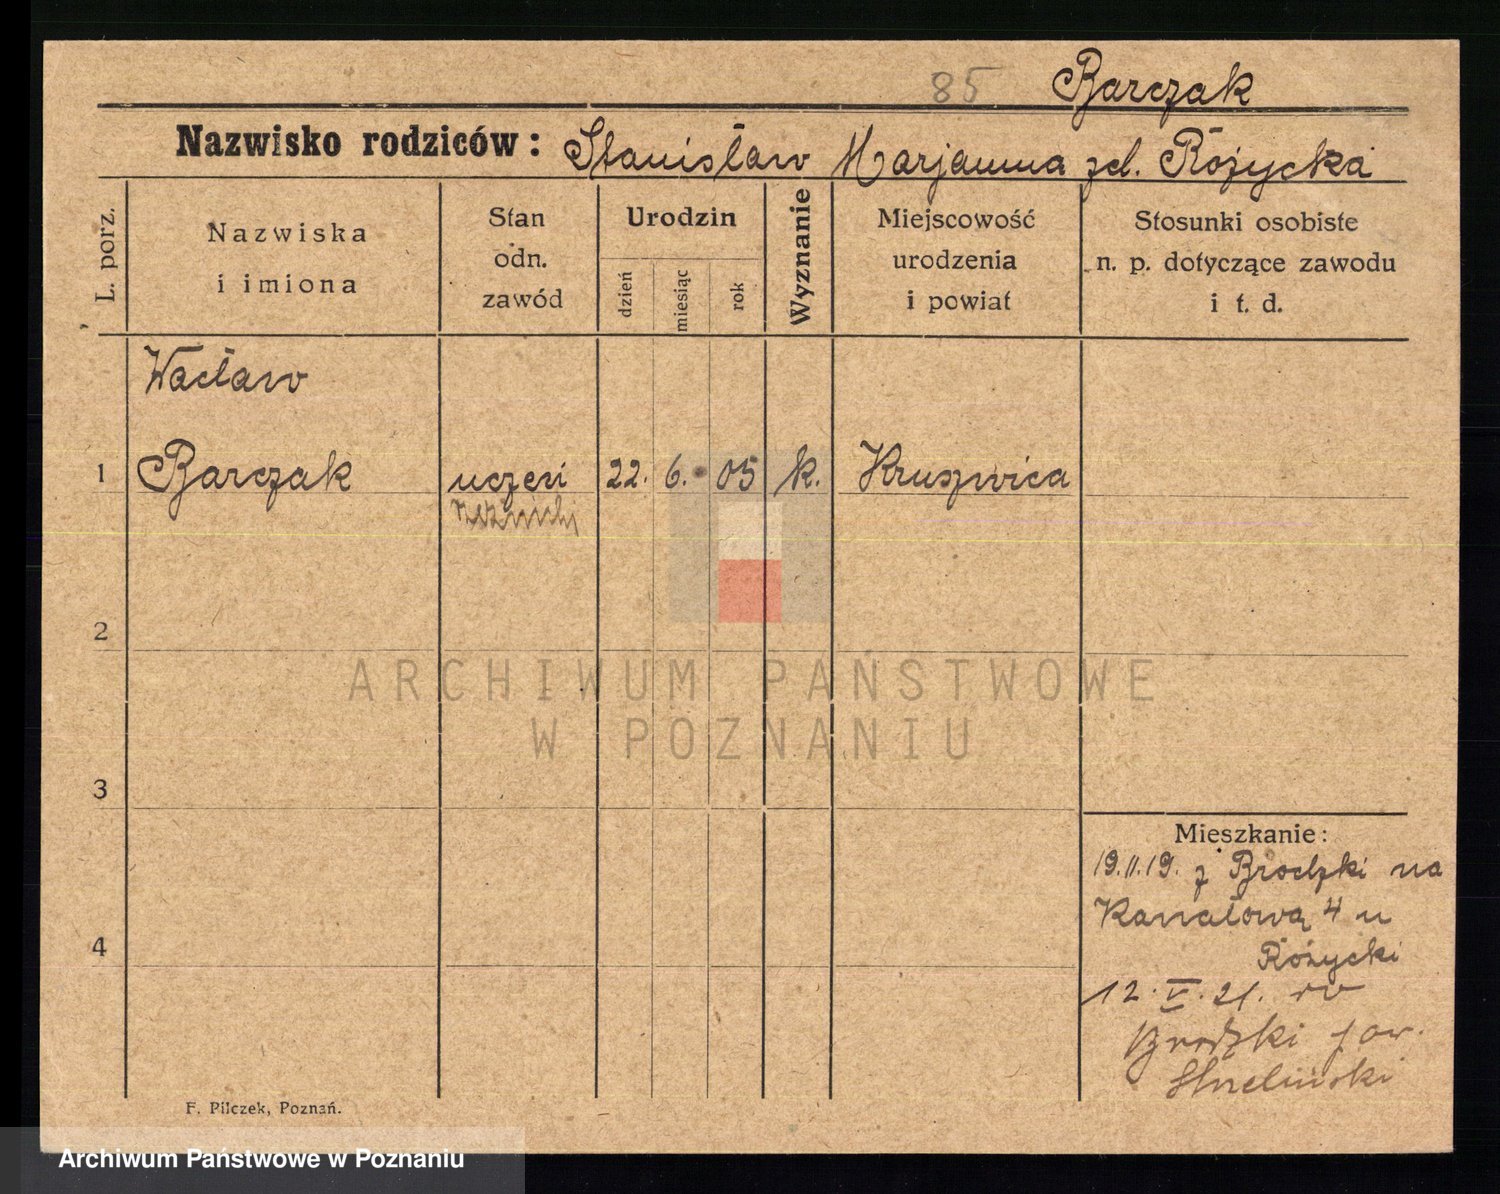 85 Barczak
Nazwisko rodziców: Stanisław Marjanna zd. Różycka
L. porz.
Nazwiska
i imiona
Stan
odn.
zawód
Urodzin
dzień
miesiąc
rok
Wyznanie
Miejscowość
urodzenia
i powiat
Stosunki osobiste
n. p. dotyczące zawodu
i t. d.
Wacław
1 Barczak uczeń 22. 6. 05 k. Kruszwica
rzeźnicki
2
ARCHIWUM PAŃSTWOWE
W POZNANIU
3
Mieszkanie:
19.II.19. z Brodzki na
Kanałową 4 u
Różycki
4
12. V. 21. w
Brodzki pow.
Strzeliński
F. Pilczek, Poznań.
Archiwum Państwowe w Poznaniu